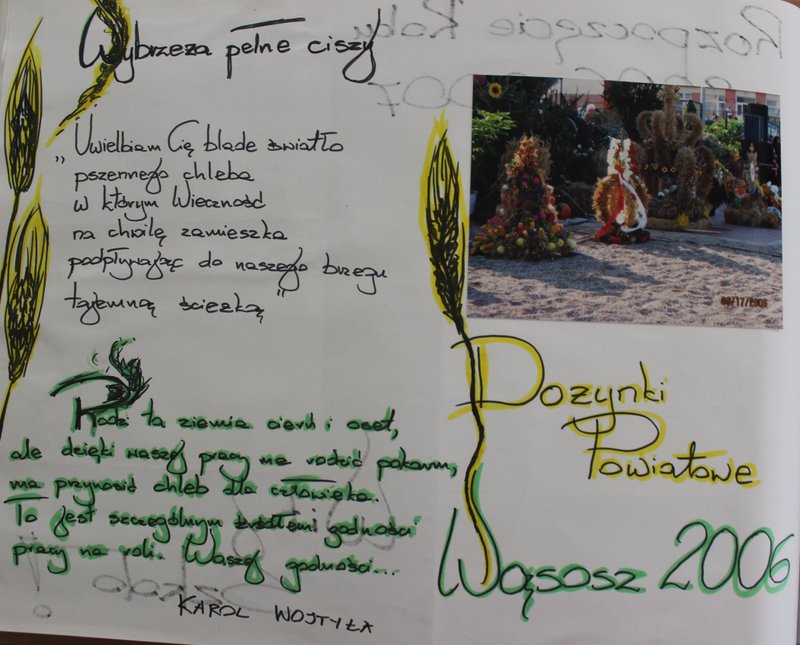 Wybrzeża pełne ciszy
„Uwielbiam Cię blade światło
pszennego chleba
w którym Wieczność
na chwilę zamieszka
podpływając do naszego brzegu
tajemną ścieżką"
Rodzi ta ziemia cierń i oset,
ale dzięki waszej pracy ma rodzić pokarm,
ma przynosić chleb dla człowieka.
To jest szczególnym źródłem godności
pracy na roli. Waszej godności...
KAROL WOJTYŁA
09/17/2006
Dożynki
Powiatowe
Wąsosz 2006